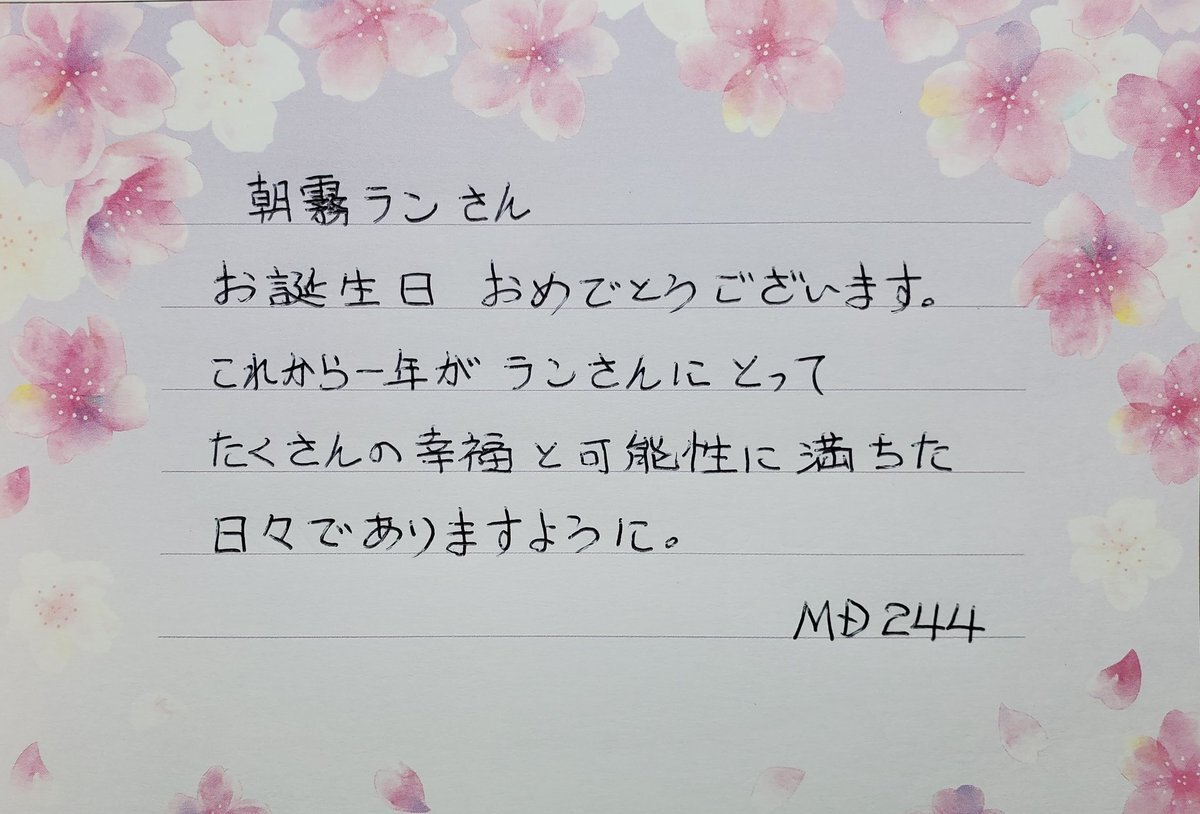 朝霧ランさん
お誕生日 おめでとうございます。
これから一年が ランさんにとって
たくさんの幸福と可能性に満ちた
日々でありますように。
MD244